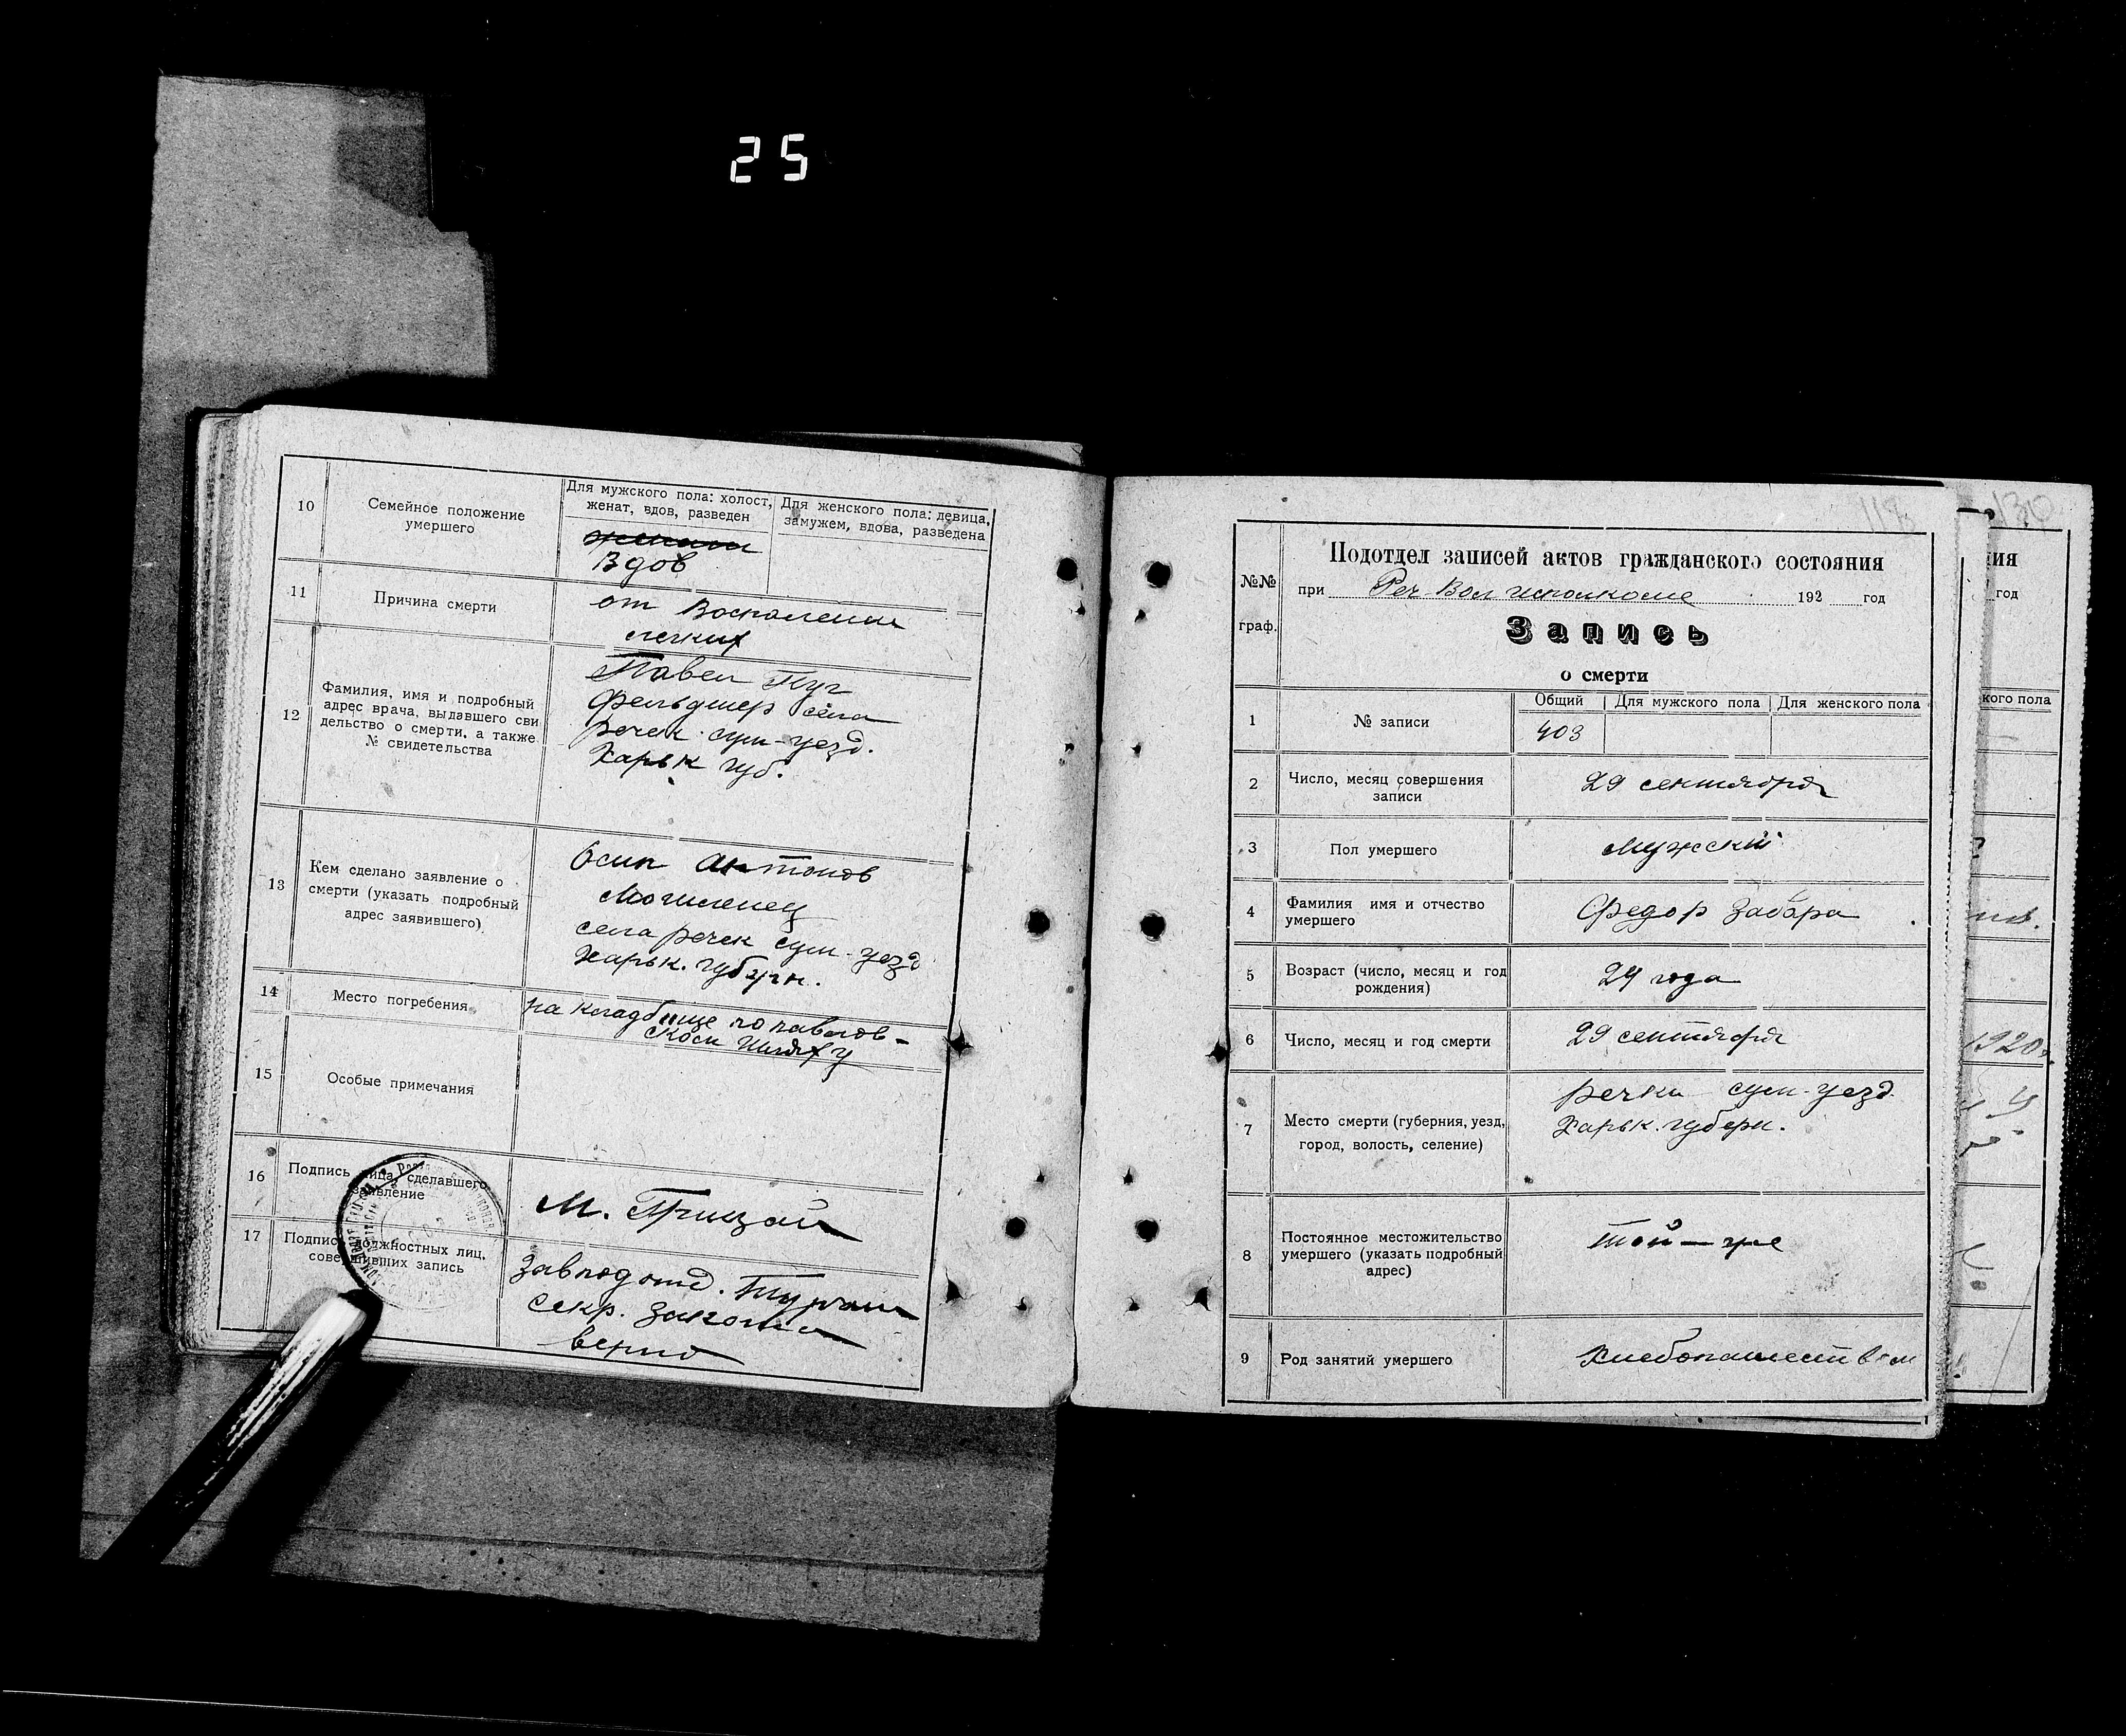 25
10
Семейное положение
умершего
Для мужского пола: холост,
женат, вдов, разведен
Для женского пола: девица,
замужем, вдова, разведена
женат
Вдов
11
Причина смерти
от Воспаления
легких
12
Фамилия, имя и подробный
адрес врача, выдавшего сви
дельство о смерти, а также
№ свидетельства
Павел
Фельдшер села
Речек сум-уезд.
Харьк губ.
13
Кем сделано заявление о
смерти (указать подробный
адрес заявившего)
Осип Антонов
Могиленец
села речек сум-уезд
Харьк. губерн.
14
Место погребения
на кладбище по павлов-
Шляху
15
Особые примечания
16
Подпись лица, сделавшего
заявление
М. Грицай
17
Подпись должностных лиц,
совершивших запись
Завподотд.
Секр.
верно
118
№№
граф.
Подотдел записей актов гражданского состояния
при Реч Вол исполкоме 192 год
Запись
о смерти
1
№ записи
Общий
Для мужского пола
Для женского пола
403
2
Число, месяц совершения
записи
29 сентября
3
Пол умершего
Мужскій
4
Фамилия имя и отчество
умершего
Федор Забара
5
Возраст (число, месяц и год
рождения)
24 года
6
Число, месяц и год смерти
29 сентября
7
Место смерти (губерния, уезд,
город, волость, селение)
речки сум-уезд
Харьк. губерн.
8
Постоянное местожительство
умершего (указать подробный
адрес)
той-же
9
Род занятий умершего
Хлебопашеством
130
ия
год
кого пола
1920